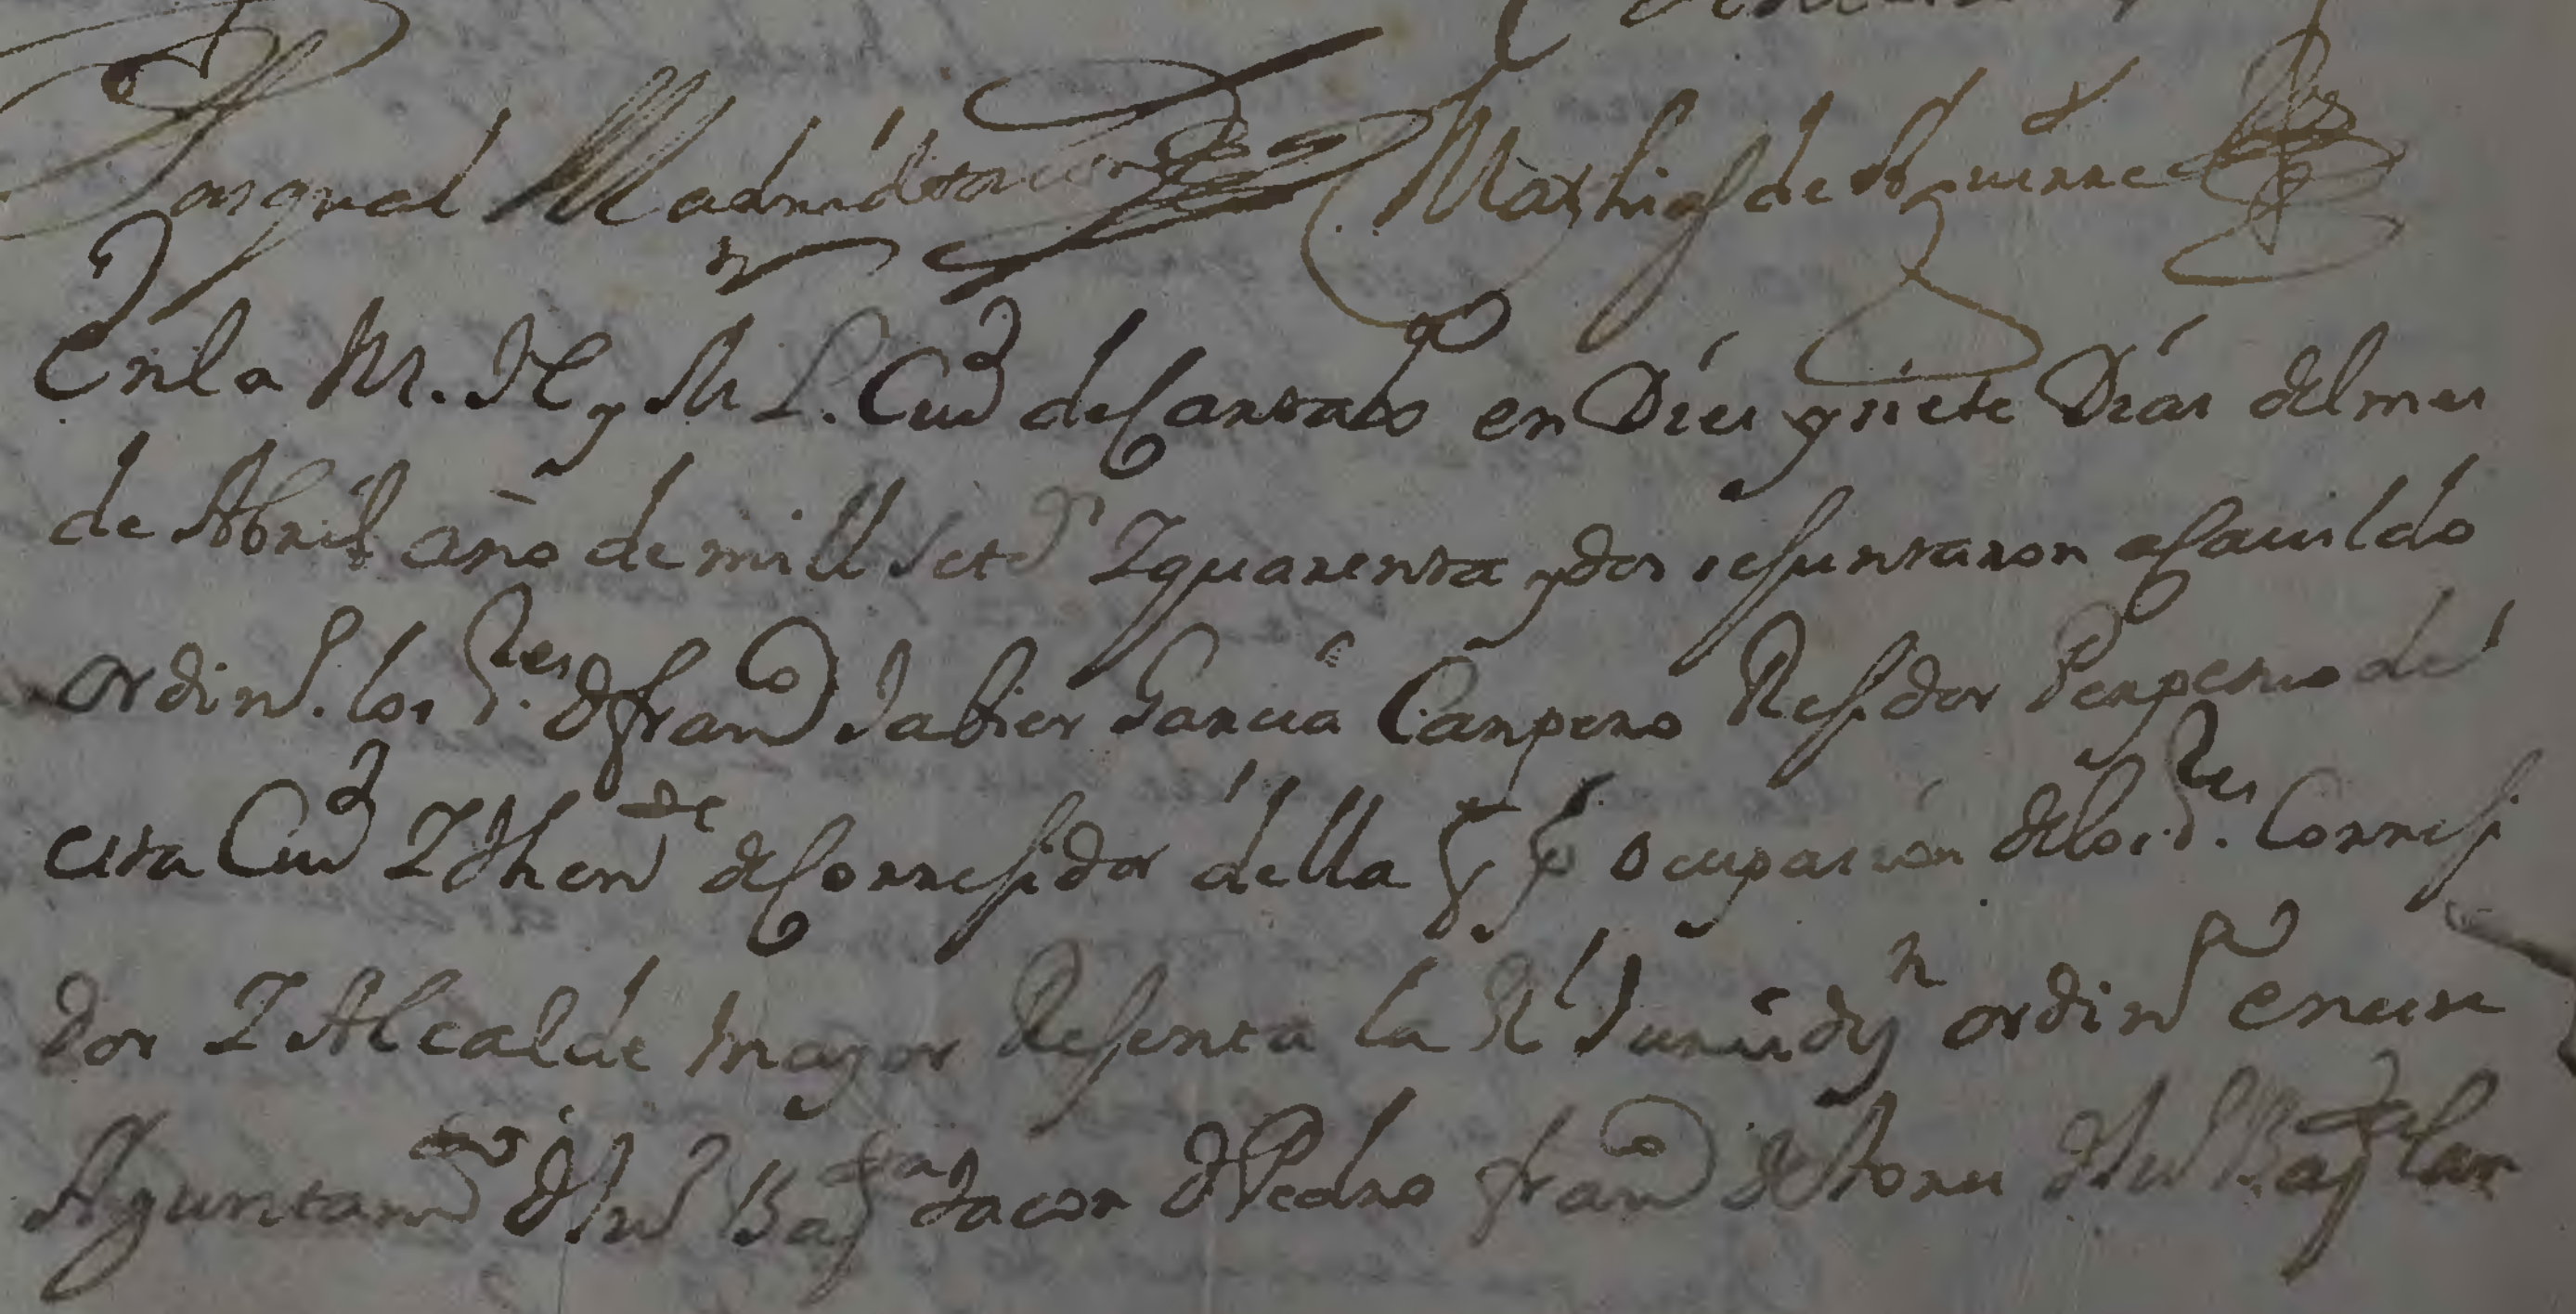 Pasqual Madrid Mathias de
En la M. N. y M. L. Ciud de Cartaxa en Dies y siete Dias del mes
de Abril año de mill setes Y quarenta y dos se juntaron a Cavildo
ordino. los Sres. D franco Jabier Garcia Campero Rejidor Perpetuo de
esta Ciud Y thente de Correjidor della y por ocupasion de los Sres. Correji
dor Y Alcalde mayor Rejenta la Rl Jurisdyn ordina en este
Ayuntamto D Jun Bapta D Pedro franco de D Jun Bapta